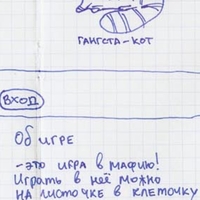 ГАНГСТА-КОТ
ВХОД
Об ИГРЕ
-это игра в мафию!
Играть в неё можно
НА листочке в клеточку